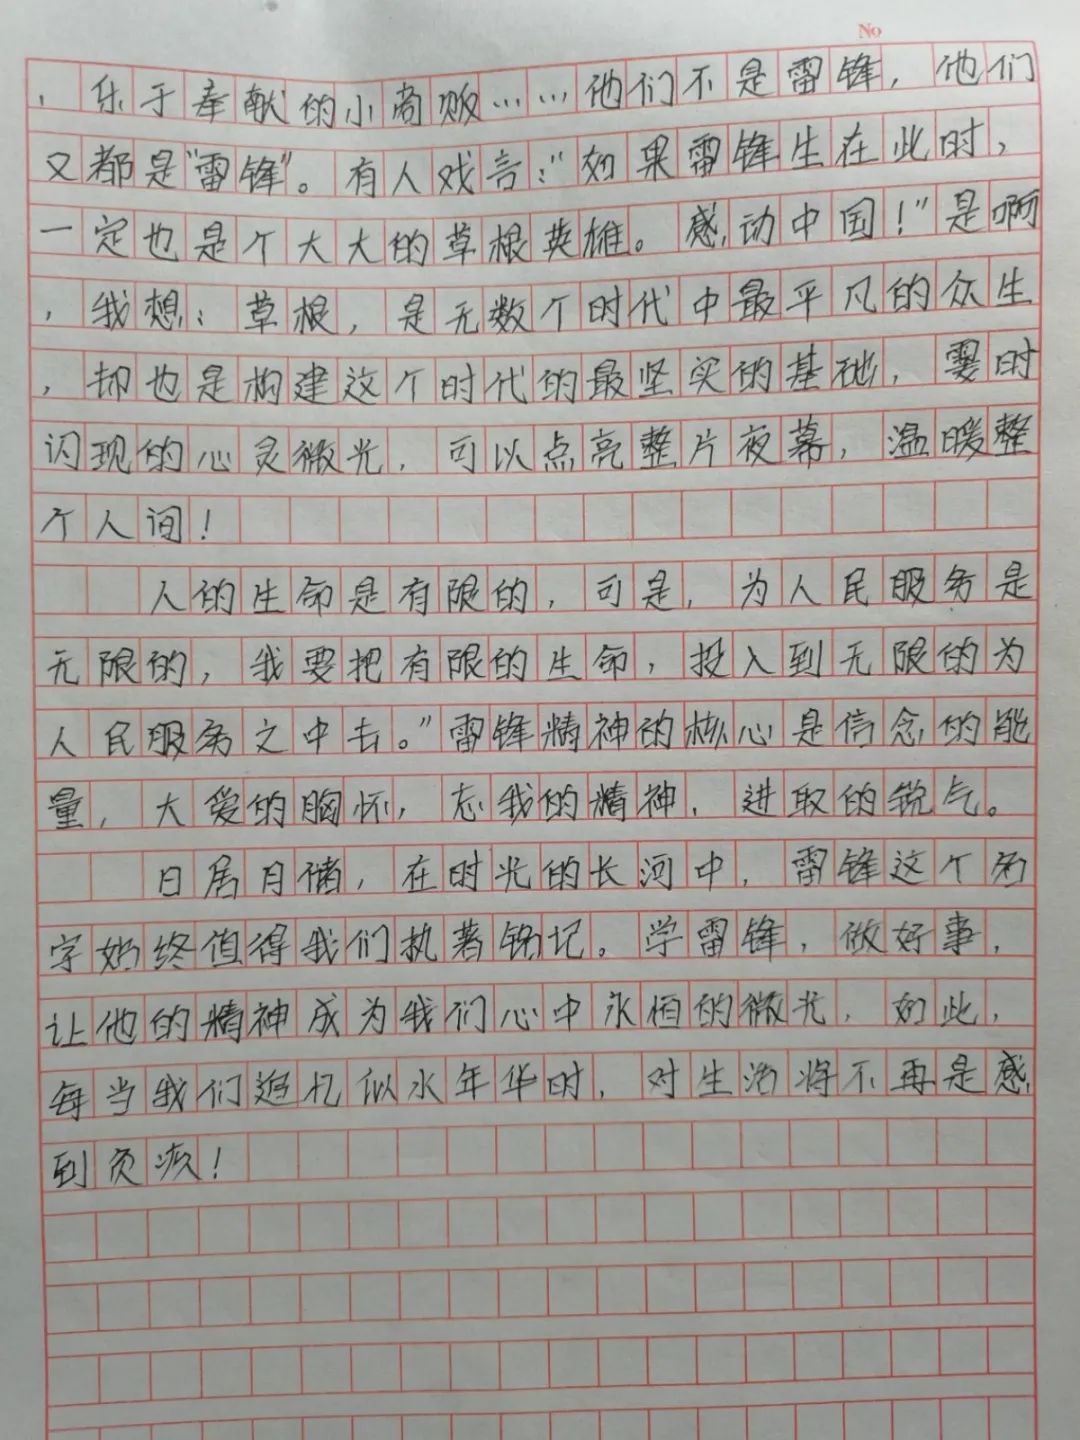 No
，乐于奉献的小商贩……他们不是雷锋，他们
又都是“雷锋”。有人戏言：“如果雷锋生在此时，
一定也是个大大的草根英雄。感动中国！”是啊
，我想：草根，是无数个时代中最平凡的众生
，却也是构建这个时代的最坚实的基础，霎时
闪现的心灵微光，可以点亮整片夜幕，温暖整
个人间！
人的生命是有限的，可是，为人民服务是
无限的，我要把有限的生命，投入到无限的为
人民服务之中去。”雷锋精神的核心是信念的能
量，大爱的胸怀，忘我的精神，进取的锐气。
日居月储，在时光的长河中，雷锋这个名
字始终值得我们执著铭记。学雷锋，做好事，
让他的精神成为我们心中永恒的微光，如此，
每当我们追忆似水年华时，对生活将不再是感
到负疚！